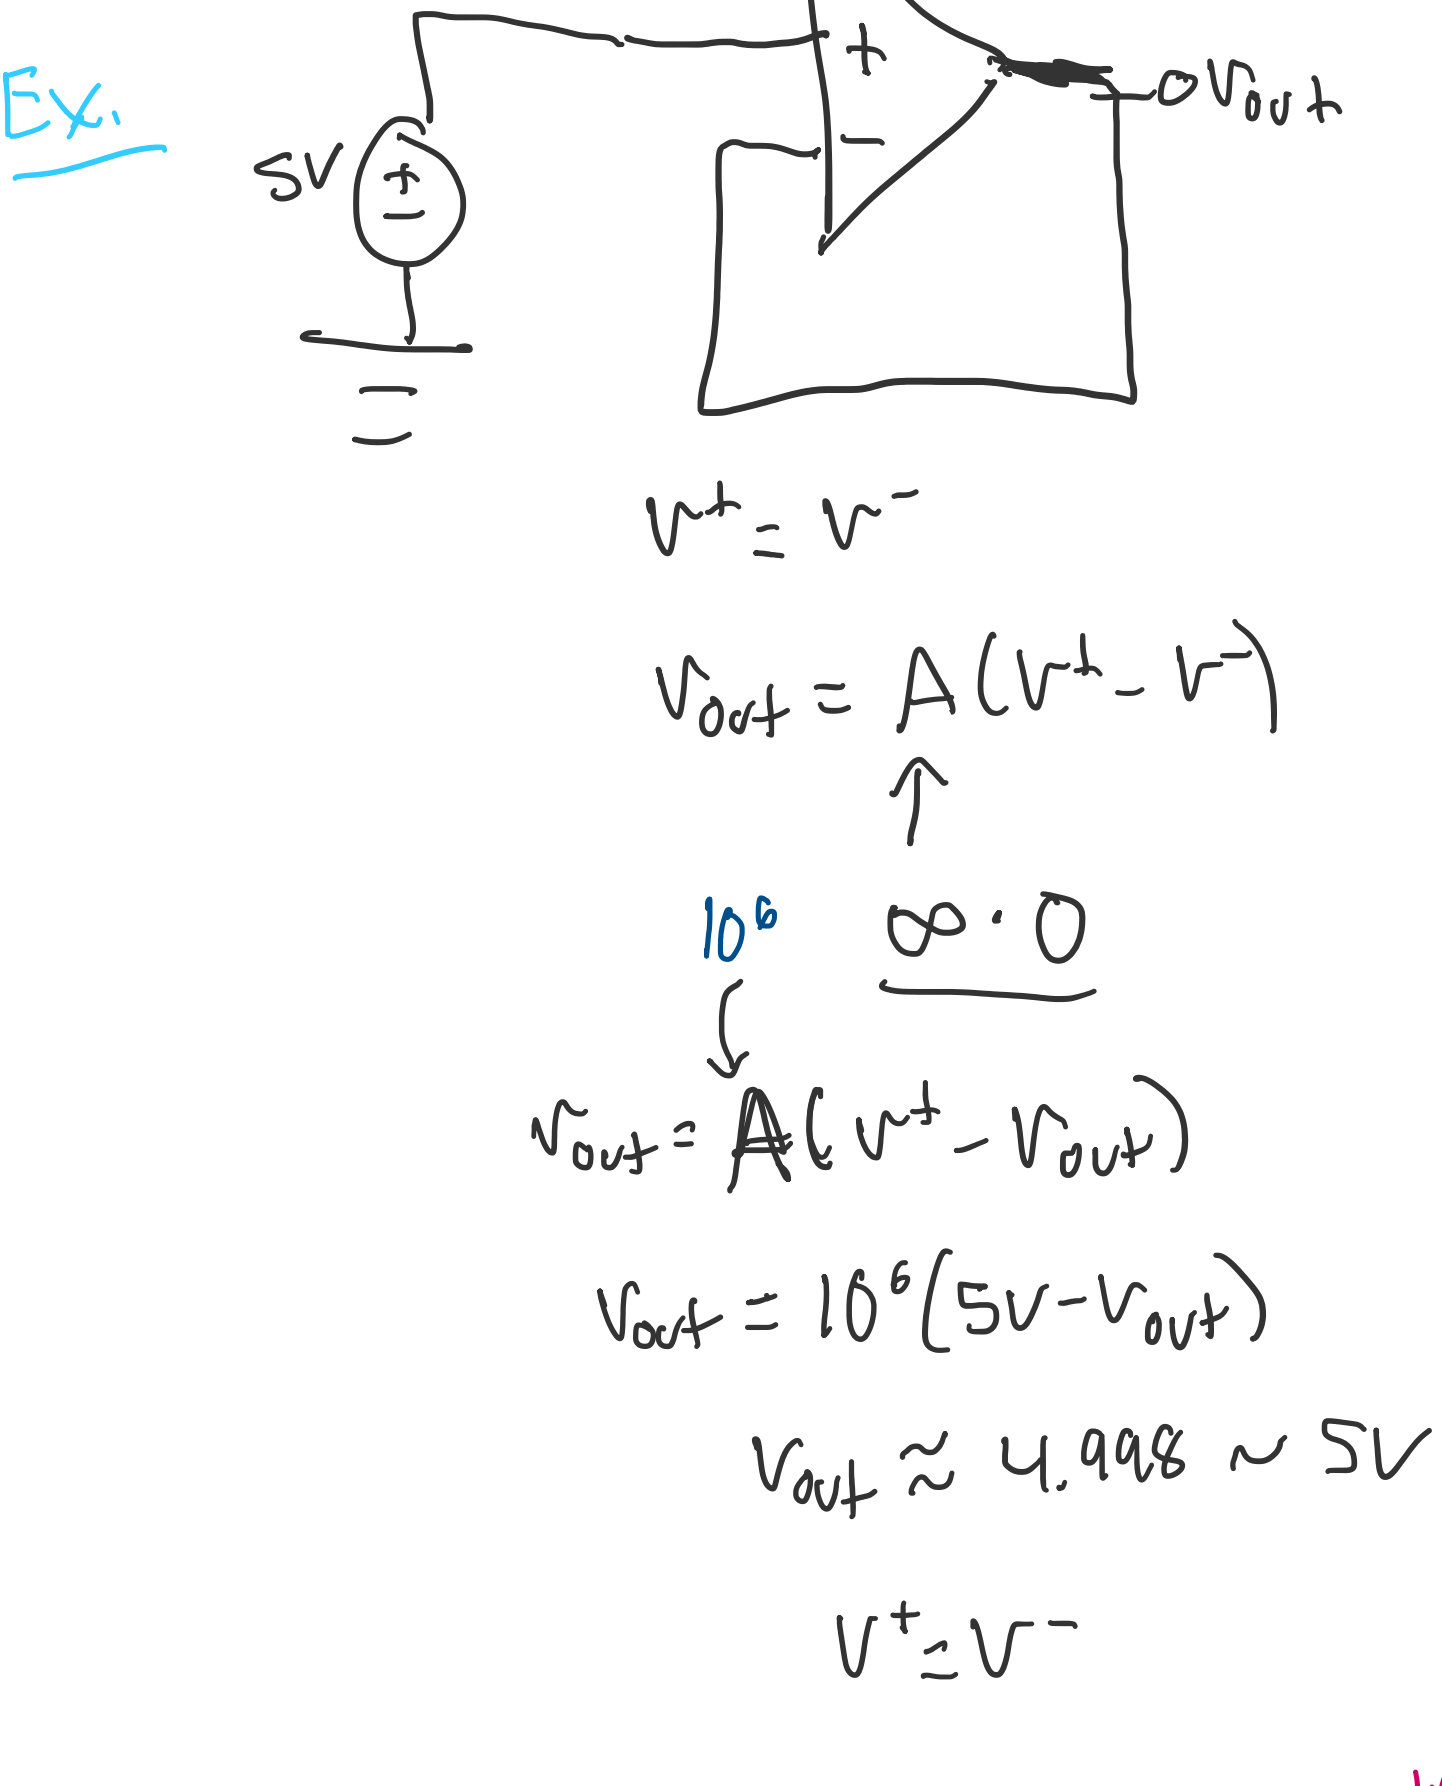 Ex.
5V
+
-
+
-
o Vout
V⁺ = V⁻
Vout = A(V⁺ - V⁻)
↑
10⁶ ∞ · 0
Vout = A(V⁺ - Vout)
Vout = 10⁶(5V - Vout)
Vout ≈ 4.998 ~ 5V
V⁺ = V⁻